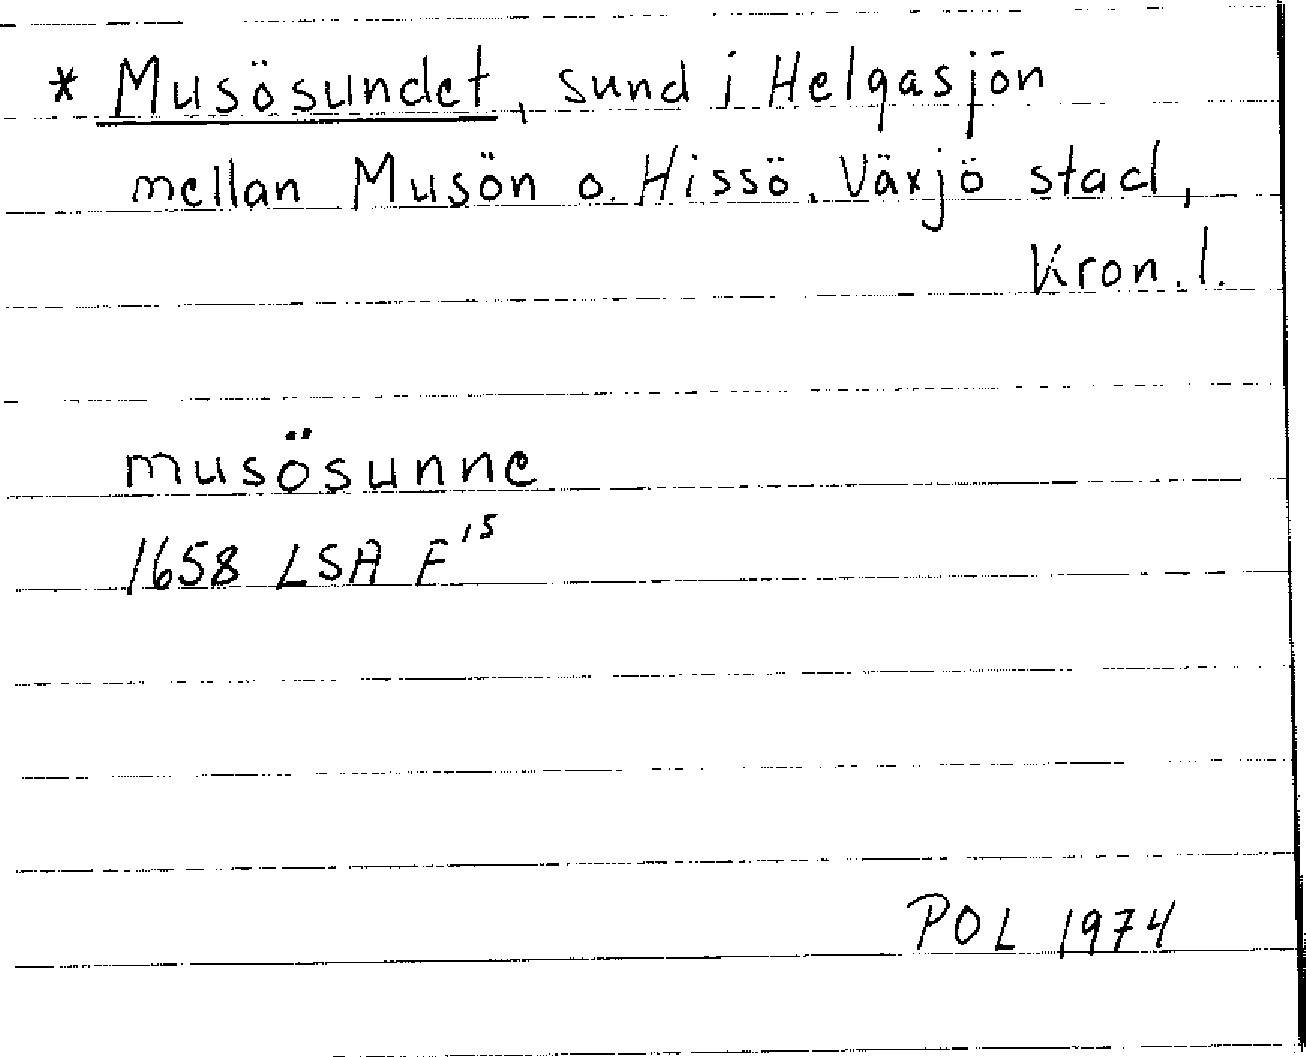 * Musösundet, sund i Helgasjön
mellan Musön o. Hissö. Växjö stad,
Kron. l.
musösunne
1658 LSA F¹⁵
POL 1974